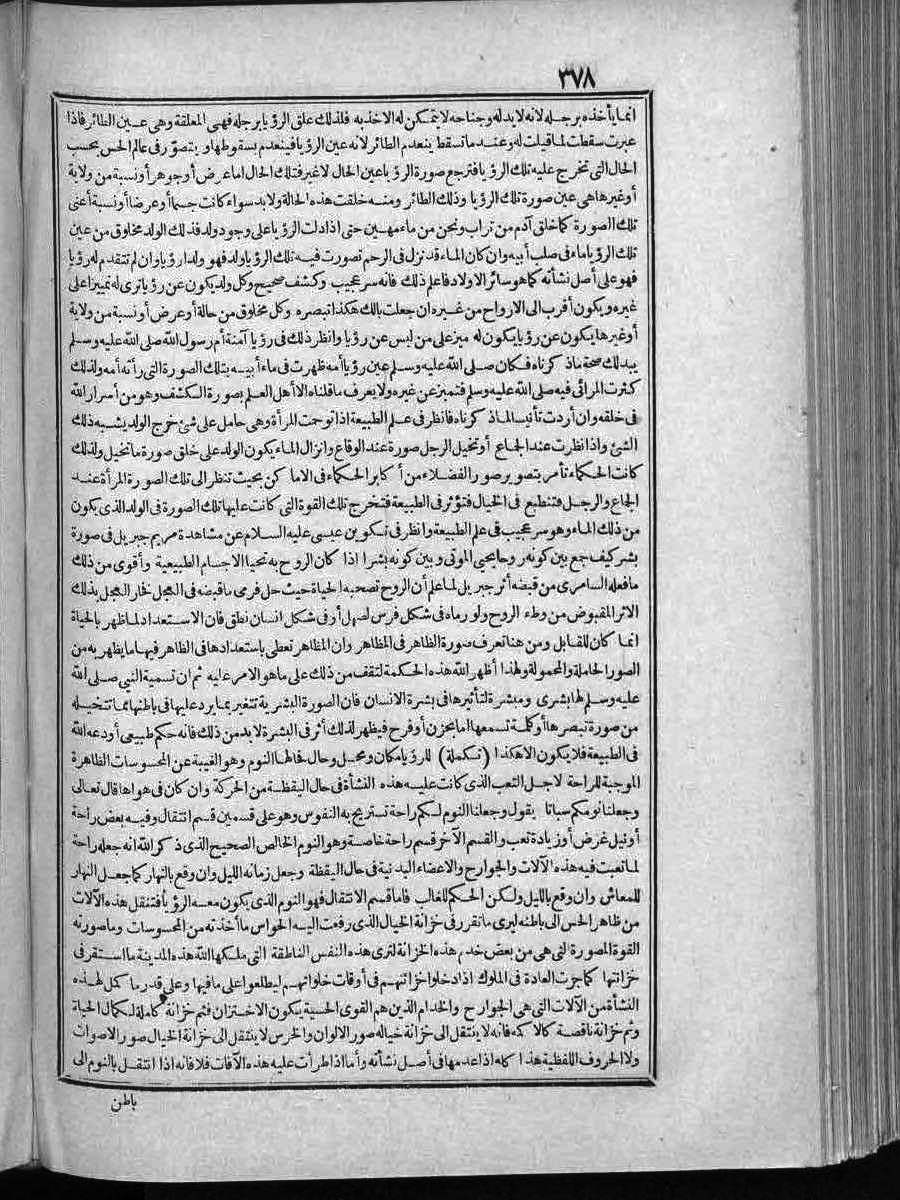 ٣٧٨
انما يأخذه برجله لانه لا يد له وجناحه لا يتمكن له الاخذ به فلذلك علق الرؤيا برجله فهى المعلقة وهى عين الطائر فاذا
عبرت سقطت لما قيلت له وعند ما تسقط ينعدم الطائر لانه عين الرؤيا فينعدم بسقوطها ويتصوّر فى عالم الحس بحسب
الحال التى تخرج عليه تلك الرؤيا فترجع صورة الرؤيا عين الحال لا غير فتلك الحال اما عرض أو جوهر أو نسبة من ولاية
أو غيرها هى عين صورة تلك الرؤيا وذلك الطائر ومنه خلقت هذه الحالة ولا بد سواء كانت جسما أو عرضا أو نسبة أعنى
تلك الصورة كما خلق آدم من تراب ونحن من ماء مهين حتى اذا دلت الرؤيا على وجود ولد فذلك الولد مخلوق من عين
تلك الرؤيا ماء فى صلب أبيه وان كان الماء قد نزل فى الرحم تصورت فيه تلك الرؤيا ولد فهو ولد رؤيا وان لم تتقدم له رؤيا
فهو على أصل نشأته كما هو سائر الاولاد فاعلم ذلك فانه سر عجيب وكشف صحيح وكل ولد يكون عن رؤيا ترى له تمييزا على
غيره ويكون أقرب الى الارواح من غيره ان جعلت بالك هكذا تبصره وكل مخلوق من حالة أو عرض أو نسبة من ولاية
أو غيرها يكون عن رؤيا يكون له ميز على من ليس عن رؤيا وانظر ذلك فى رؤيا آمنة أم رسول الله صلى الله عليه وسلم
يبد لك صحة ما ذكرناه فكان صلى الله عليه وسلم عين رؤيا أمه ظهرت فى ماء أبيه بتلك الصورة التى رأته أمه ولذلك
كثرت المرائى فيه صلى الله عليه وسلم فتميز عن غيره ولا يعرف ما قلناه الا أهل العلم بصورة الكشف وهو من أسرار الله
فى خلقه وان أردت تأنيسا لما ذكرناه فانظر فى علم الطبيعة اذا توحمت المرأة وهى حامل على شئ خرج الولد يشبه ذلك
الشئ واذا نظرت عند الجماع أو تخيل الرجل صورة عند الوقاع وانزال الماء يكون الولد على خلق صورة ما تخيل ولذلك
كانت الحكماء تأمر بتصوير صور الفضلاء من أكابر الحكماء فى الاماكن بحيث تنظر الى تلك الصورة المرأة عند
الجماع والرجل فتنطبع فى الخيال فتؤثر فى الطبيعة فتخرج تلك القوة التى كانت عليها تلك الصورة فى الولد الذى يكون
من ذلك الماء وهو سر عجيب فى علم الطبيعة وانظر فى تكوين عيسى عليه السلام عن مشاهدة مريم جبريل فى صورة
بشر كيف جمع بين كونه روحا يحيى الموتى وبين كونه بشرا اذا كان الروح به تحيا الاجسام الطبيعية وأقوى من ذلك
ما فعله السامرى من قبضه أثر جبريل لما علم أن الروح تصحبه الحياة حيث حل فرمى ما قبضه فى العجل فخار العجل بذلك
الاثر المقبوض من وطء الروح ولو رماه فى شكل فرس لصهل أو فى شكل انسان نطق فان الاستعداد لما ظهر بالحياة
انما كان للقابل ومن هنا تعرف صورة الظاهر فى المظاهر وان المظاهر تعطى باستعدادها فى الظاهر فيها ما يظهر به من
الصور الحاملة والمحمولة ولهذا أظهر الله هذه الحكمة لتقف من ذلك على ما هو الامر عليه ثم ان تسمية النبى صلى الله
عليه وسلم لها بشرى ومبشرة لتأثيرها فى بشرة الانسان فان الصورة البشرية تتغير بما يرد عليها فى باطنها مما تتخيله
من صورة تبصرها أو كلمة تسمعها اما بحزن أو فرح فيظهر لذلك أثر فى البشرة لا بد من ذلك فانه حكم طبيعى أودعه الله
فى الطبيعة فلا يكون الا هكذا (تكملة) للرؤيا مكان ومحل وحال فحالها النوم وهو الغيبة عن المحسوسات الظاهرة
الموجبة للراحة لاجل التعب الذى كانت عليه هذه النشأة فى حال اليقظة من الحركة وان كان فى هواها قال تعالى
وجعلنا نومكم سباتا يقول وجعلنا النوم لكم راحة تستريح به النفوس وهو على قسمين قسم انتقال وفيه بعض راحة
أو نيل غرض أو زيادة تعب والقسم الآخر قسم راحة خاصة وهو النوم الخالص الصحيح الذى ذكر الله انه جعله راحة
لما تعبت فيه هذه الآلات والجوارح والاعضاء البدنية فى حال اليقظة وجعل زمانه الليل وان وقع بالنهار كما جعل النهار
للمعاش وان وقع بالليل ولكن الحكم للغالب فاما قسم الانتقال فهو النوم الذى يكون معه الرؤيا فتنقل هذه الآلات
من ظاهر الحس الى باطنه ليرى ما تقرر فى خزانة الخيال الذى رفعت اليه الحواس ما أخذته من المحسوسات وما صورته
القوة المصورة التى هى من بعض خدم هذه الخزانة لترى هذه النفس الناطقة التى ملكها الله هذه المدينة ما استقر فى
خزانتها كما جرت العادة فى الملوك اذا دخلوا خزائنهم فى أوقات خلواتهم ليطلعوا على ما فيها وعلى قدر ما كمل لهذه
النشأة من الآلات التى هى الجوارح والخدام الذين هم القوى الحسية يكون الاختزان فثم خزانة كاملة لكمال الحياة
وثم خزانة ناقصة كالاكمه فانه لا ينتقل الى خزانة خياله صور الالوان والخرس لا ينتقل الى خزانة الخيال صور الاصوات
ولا الحروف اللفظية هذا كله اذا عدمها فى أصل نشأته وأما اذا طرأت عليه هذه الآفات فلا فانه اذا انتقل بالنوم الى
باطن